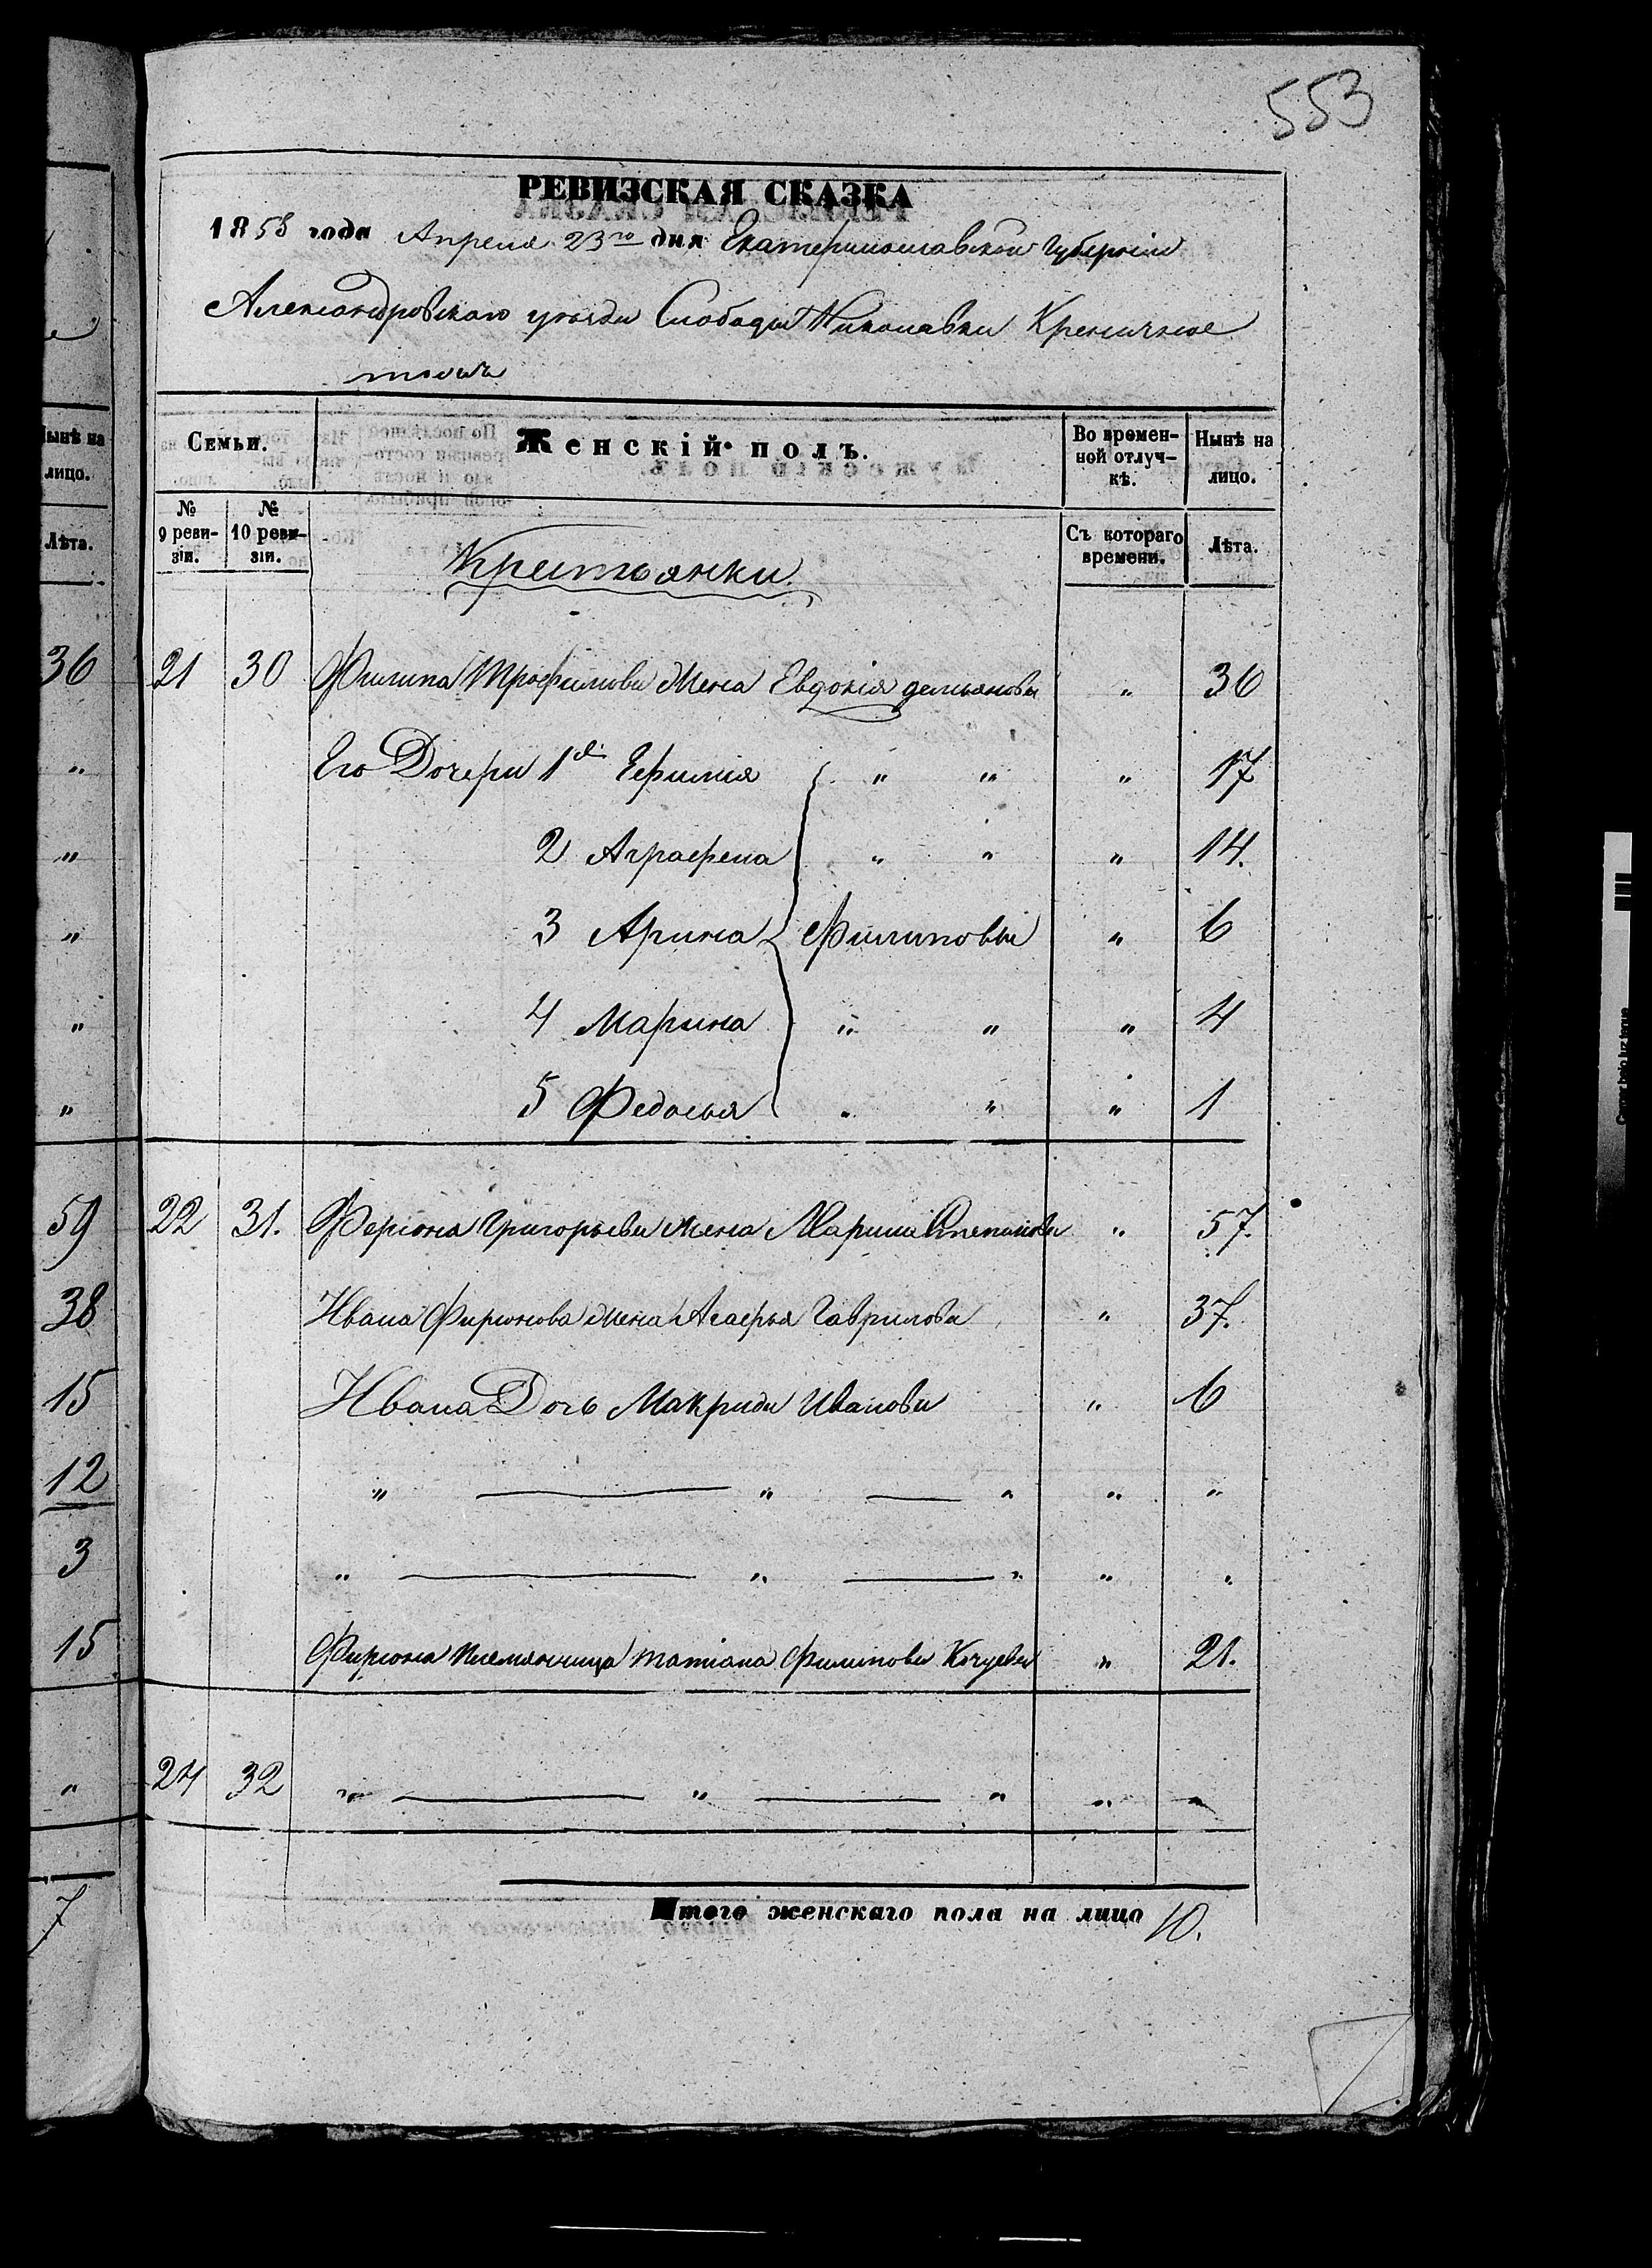 553
РЕВИЗСКАЯ СКАЗКА
1858 года Апреля 23го дня Екатеринославской Губернии
Александровского уезда Слободы Николавки Кременчукое
тожъ
Семьи. Женскій полъ. Во времен-ной отлуч-кѣ. Нынѣ на лицо.
№ 9 реви-зіи. № 10 реви-зіи. Съ котораго времени. Лѣта.
Крестьянки
21 30 Филипа Трофимова Жена Евдокія демьянова " 36
Его Дочери 1я Ефимія " " " 17
2 Аграфена " " " 14.
3 Арина Филиповы " 6
4 Марина " " " 4
5 Федосья " " " 1
22 31. Фирсона Григорьева Жена Марина Степанова " 57.
Ивана Фирсонова Жена Агафья Гаврилова " 37.
Ивана Дочь Макрида Иванова " 6
" — " — " " "
" — " — " " "
Фирсона племянница татіана Филипова " 21.
24 32 " — " — " " "
Итого женскаго пола на лицо 10.
Нынѣ на
лицо.
Лѣта.
36
"
"
"
"
"
59
38
15
12
3
15
"
7